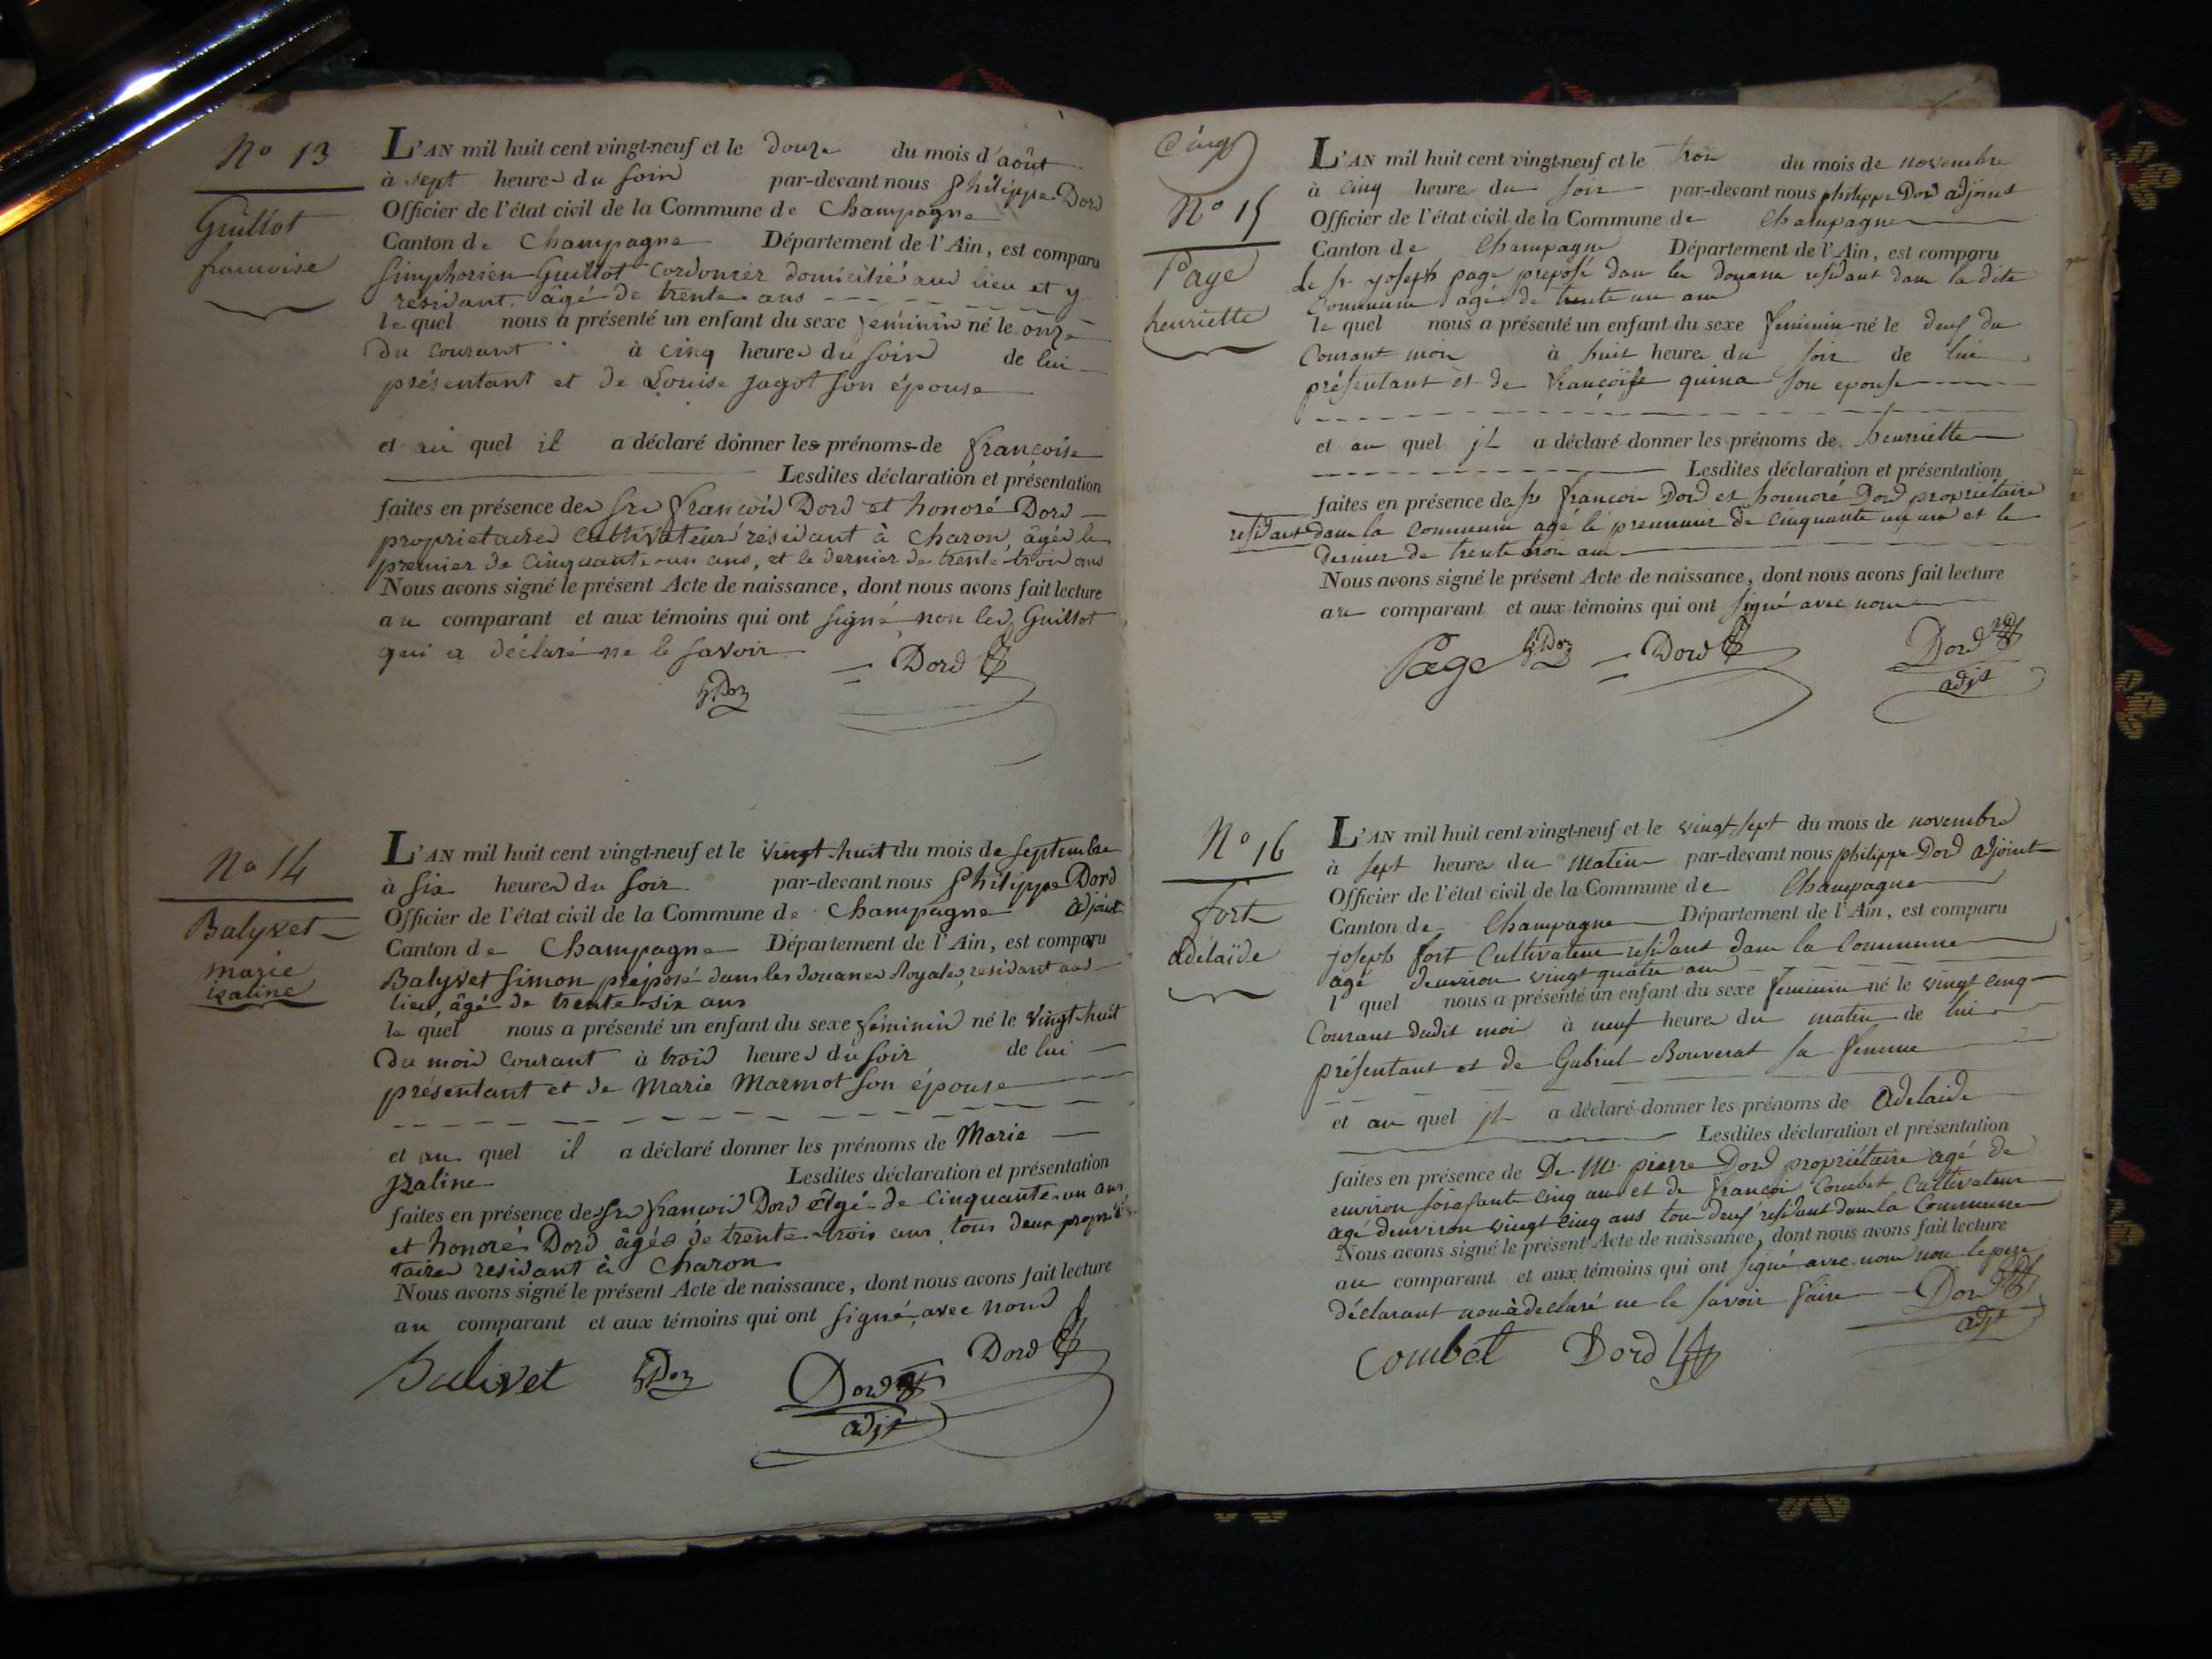 N° 13
Guillot
francoise
L'AN mil huit cent vingt-neuf et le douze du mois d'août
à sept heures du soir par-devant nous Philippe Dord
Officier de l'état civil de la Commune de Champagne
Canton de Champagne Département de l'Ain, est comparu
Simphorien Guillot cordonier domicilié aud lieu et y
résidant, âgé de trente ans
le quel nous a présenté un enfant du sexe féminin né le onze
du courant à cinq heures du soir de lui
présentant et de Louise Jagot son épouse
et au quel il a déclaré donner les prénoms de francoise
Lesdites déclaration et présentation
faites en présence des srs francois Dord et honoré Dord
proprietaires cultivateurs résidant à Charon, âgés le
premier de cinquante-un ans, et le dernier de trente-trois ans
Nous avons signé le présent Acte de naissance, dont nous avons fait lecture
au comparant et aux témoins qui ont signé non led Guillot
qui a déclaré ne le savoir
Dord
N° 14
Balyvet
marie
izaline
L'AN mil huit cent vingt-neuf et le vingt-huit du mois de septembre
à six heures du soir par-devant nous Philippe Dord
Officier de l'état civil de la Commune de Champagne adjoint
Canton de Champagne Département de l'Ain, est comparu
Balyvet Simon préposé dans les douanes Royales, residant aud
lieu, âgé de trente-six ans
le quel nous a présenté un enfant du sexe féminin né le vingt-huit
du mois courant à trois heures du soir de lui
présentant et de Marie Marmot son épouse
et au quel il a déclaré donner les prénoms de Marie
Izaline Lesdites déclaration et présentation
faites en présence des srs francois Dord âgé de cinquante-un ans
et honoré Dord âgés de trente-trois ans, tous deux proprié
taires residant à Charon
Nous avons signé le présent Acte de naissance, dont nous avons fait lecture
au comparant et aux témoins qui ont signé, avec nous
Balivet Dord Dord
adjt
Cinq
N° 15
Page
henriette
L'AN mil huit cent vingt-neuf et le trois du mois de novembre
à cinq heures du soir par-devant nous philippe Dord adjoint
Officier de l'état civil de la Commune de Champagne
Canton de Champagne Département de l'Ain, est comparu
le sr joseph page préposé dans les douanes residant dans la dite
Commune agé de trente un ans
le quel nous a présenté un enfant du sexe feminin né le deux du
Courant mois à huit heures du soir de lui
présentant et de françoise quina son epouse
et au quel il a déclaré donner les prénoms de henriette
Lesdites déclaration et présentation
faites en présence des srs françois Dord et honnoré Dord propriétaires
résidant dans la commune agé le premier de cinquante un ans et le
dernier de trente trois ans
Nous avons signé le présent Acte de naissance, dont nous avons fait lecture
au comparant et aux témoins qui ont signé avec nous
Page Dord Dord
adjt
N° 16
fort
adelaïde
L'AN mil huit cent vingt-neuf et le vingt sept du mois de novembre
à sept heures du matin par-devant nous philippe Dord adjoint
Officier de l'état civil de la Commune de Champagne
Canton de Champagne Département de l'Ain, est comparu
joseph fort Cultivateur residant dans la Commune
agé denviron vingt quatre ans
l quel nous a présenté un enfant du sexe feminin né le vingt cinq
Courant dudit mois à neuf heures du matin de lui
présentant et de Gabriel Bouverat sa femme
et au quel il a déclaré donner les prénoms de Adelaide
Lesdites déclaration et présentation
faites en présence de De Mr pierre Dord propriétaire agé de
environ soixante cinq ans et de françois Combet Cultivateur
agé denviron vingt cinq ans tous deux residant dans la Commune
Nous avons signé le présent Acte de naissance, dont nous avons fait lecture
au comparant et aux témoins qui ont signé avec nous non le pere
déclarant nous à declaré ne le savoir faire Dord
adjt
Combet Dord